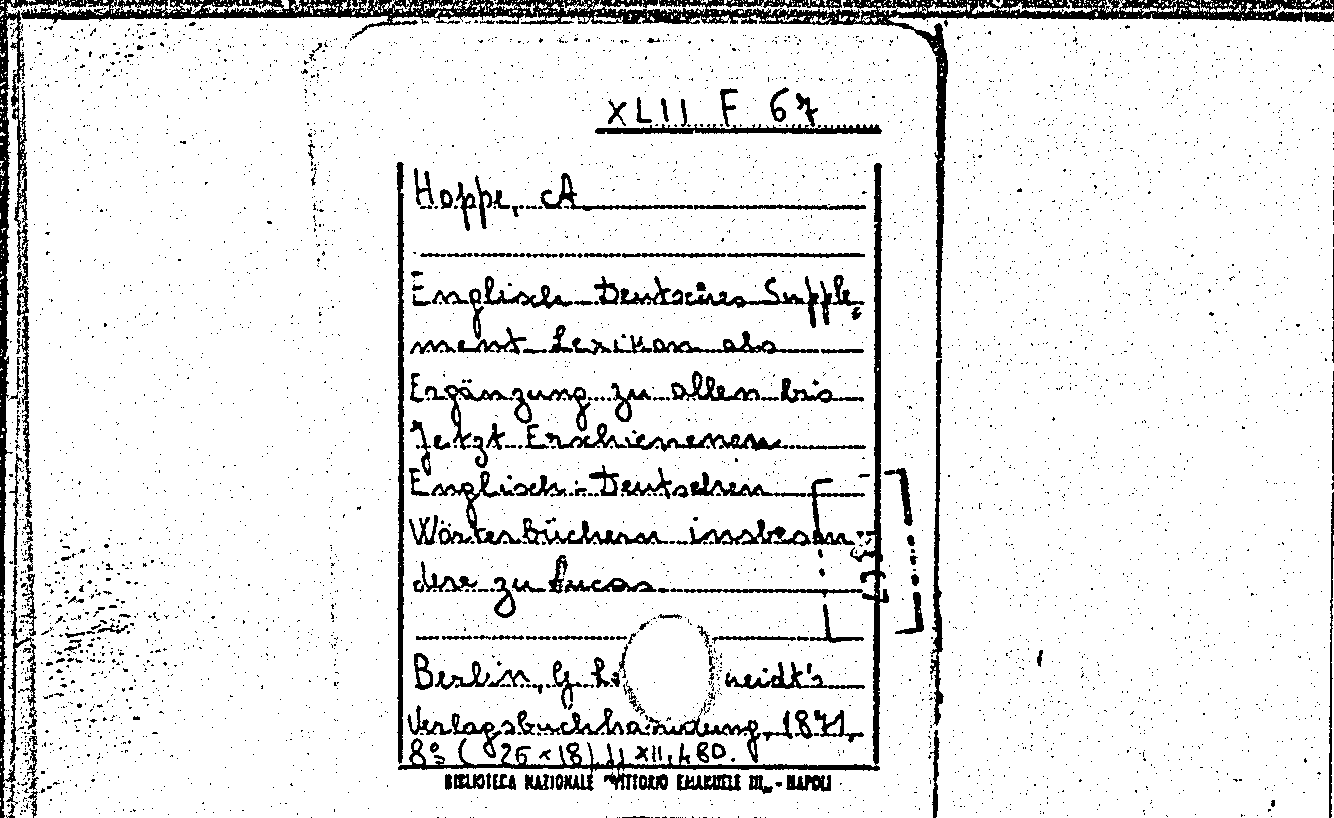 XLII F 67
Hoppe, A.
Englisch Deutsches Supple=
ment Lexikon als
Ergänzung zu allen bis
Jetzt Erschienenen
Englisch-Deutschen
Wörterbüchern insbeson=
dere zu Lucas
Berlin, G. La neidt's
Verlagsbuchhandung, 1871,
8º ( 26 × 18) XII, 480.
BIBLIOTECA NAZIONALE "VITTORIO EMANUELE III" - NAPOLI